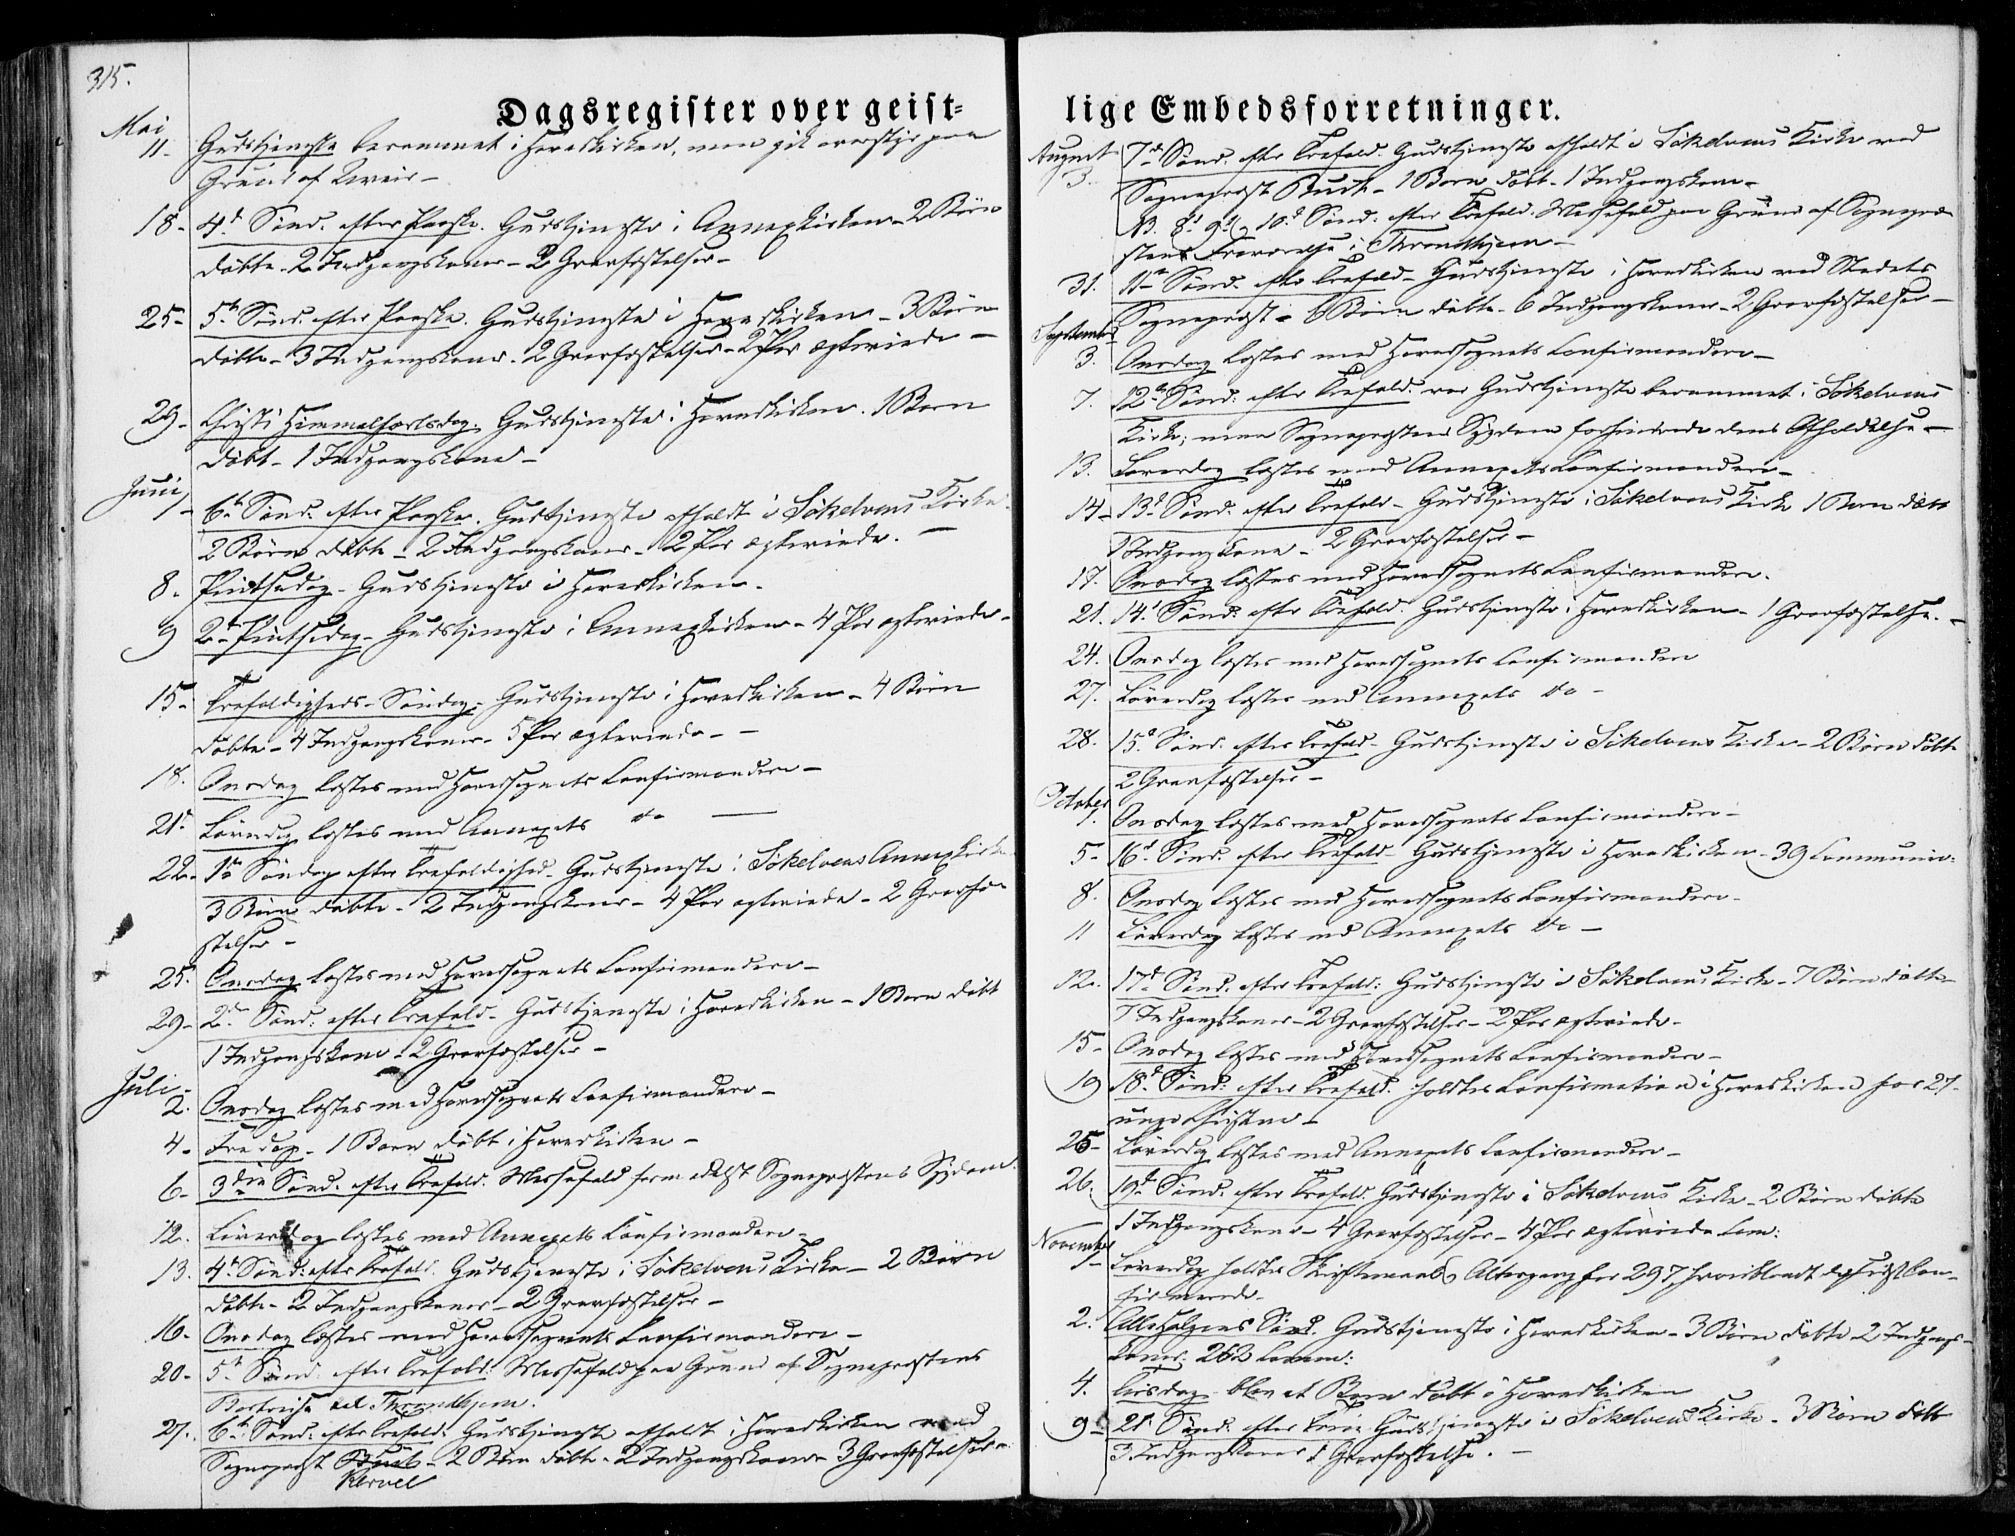 315.
Dagsregister over geist-
Mai
11- Gudstjeneste berammet i Hovedkirken, men gik overstyr paa
Grund af Uveir-
18- 4d Sønd. efter Paaske. Gudstjeneste i Annexkirken - 2 Børn
døbte. 2 Indgangskoner - 2 Gravfæstelser -
25- 5te Sønd. efter Paaske. Gudstjeneste i Hovedkirken - 3 Børn
døbte - 3 Indgangskoner. 2 Gravfæstelser - 2 Par ægteviede -
29- Christi Himmelfartsdag. Gudstjeneste i Hovedkirken. 1 Barn
døbt - 1 Indgangskone -
Juni
1- 6te Sønd. efter Paaske. Gudstjeneste afholdt i Søkelvens Kirke.
2 Børn døbte - 2 Indgangskoner - 2 Par ægteviede. -
8. Pintsedag - Gudstjeneste i Hovedkirken.
9 2den Pintsedag - Gudstjeneste i Annexkirken - 4 Par ægteviede -
15- Trefoldigheds-Søndag - Gudstjeneste i Hovedkirken - 4 Børn
døbte - 4 Indgangskoner - 5 Par ægteviede - -
18. Onsdag læstes med Hovedsognets Confirmander -
21. Løverdag læstes med Annexets do -
22- 1ste Søndag efter Trefoldighed - Gudstjeneste i Søkelvens Annexkirke
3 Børn døbte - 2 Indgangskoner - 4 Par ægteviede - 2 Gravfæ-
stelser -
25. Onsdag læstes med Hovedsognets Confirmander -
29- 2den Sønd: efter Trefold. Gudstjeneste i Hovedkirken - 1 Barn døbt
1 Indgangskone - 2 Gravfæstelser -
Juli
2. Onsdag læstes med Hovedsognets Confirmander -
4- Fredag - 1 Barn døbt i Hovedkirken -
6- 3die Sønd. efter Trefold. Messefald formedelst Sognepræstens Sygdom.
12. Løverdag læstes med Annexets Confirmander -
13. 4de Sønd: efter Trefold. Gudstjeneste i Søkelvens Kirke - 2 Børn
døbte - 2 Indgangskoner - 2 Gravfæstelser -
16- Onsdag læstes med Hovedsognets Confirmander -
20- 5te Sønd. efter Trefold: Messefald paa Grund af Sognepræstens
Bortreise til Throndhjem.
27. 6te Sønd: efter Trefold: Gudstjeneste afholdt i Hovedkirken ved
Sognepræst - 2 Børn døbte - 2 Indgangskoner - 3 Gravfæstelser.
lige Embedsforretninger.
August
3. 7de Sønd. efter Trefold. Gudstjeneste afholdt i Søkelvens Kirke ved
Sognepræst - 1 Barn døbt - 1 Indgangskone -
NB. 8d 9d & 10d Sønd. efter Trefold. Messefald paa Grund af Sognepræ-
stens Fraværelse i Throndhjem -
31. 11te Sønd. efter Trefold - Gudstjeneste i Hovedkirken ved Stedets
Sognepræst - 6 Børn døbte - 6 Indgangskoner - 2 Gravfæstelser -
September
3. Onsdag læstes med Hovedsognets Confirmander -
7. 12te Sønd: efter Trefold. var Gudstjeneste berammet i Søkelvens
Kirke; men Sognepræstens Sygdom forhindrede dens Afholdelse -
13. Løverdag læstes med Annexets Confirmander -
14- 13d Sønd: efter Trefold - Gudstjeneste i Søkelvens Kirke 1 Barn døbt
1 Indgangskone - 2 Gravfæstelser -
17. Onsdag læstes med Hovedsognets Confirmander.
21. 14d Sønd: efter Trefold. Gudstjeneste i Hovedkirken - 1 Gravfæstelse. -
24. Onsdag læstes med Hovedsognets Confirmander
27. Løverdag læstes med Annexets do -
28. 15d Sønd: efter Trefold - Gudstjeneste i Søkelvens Kirke - 2 Børn døbte
2 Gravfæstelser -
October
1. Onsdag læstes med Hovedsognets Confirmander -
5- 16d Sønd. efter Trefold - Gudstjeneste i Hovedkirken - 39 Communic:
8. Onsdag læstes med Hovedsognets Confirmander -
11 Løverdag læstes med Annexets do -
12. 17d Sønd: efter Trefold: Gudstjeneste i Søkelvens Kirke - 7 Børn døbte
7 Indgangskoner - 2 Gravfæstelser - 2 Par ægteviede -
15- Onsdag læstes med Hovedsognets Confirmander -
19 18d Sønd: efter Trefold. holdtes Confirmation i Hovedkirken for 27
unge Christne -
25- Løverdag læstes med Annexets Confirmander -
26. 19d Sønd. efter Trefold. Gudstjeneste i Søkelvens Kirke - 2 Børn døbte
1 Indgangskone - 4 Gravfæstelser - 4 Par ægteviede
November
1- Løverdag holdtes Skriftemaal & Altergang for 297, hvoriblandt de sidst Con-
firmerede -
2. Alle Helgens Sønd. Gudstjeneste i Hovedkirken - 3 Børn døbte 2 Indgangs-
koner. 262 Comm:
4. Tirsdag blev et Barn døbt i Hovedkirken
9- 21. Sønd: efter Gudstjeneste i Søkelvens Kirke - 3 Børn døbte
3 Indgangskoner 1 Gravfæstelse. -